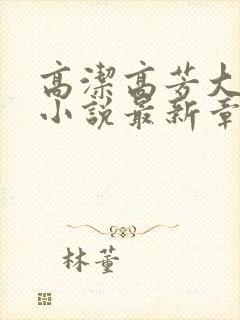 高潔高芳大
小說最新章
林董